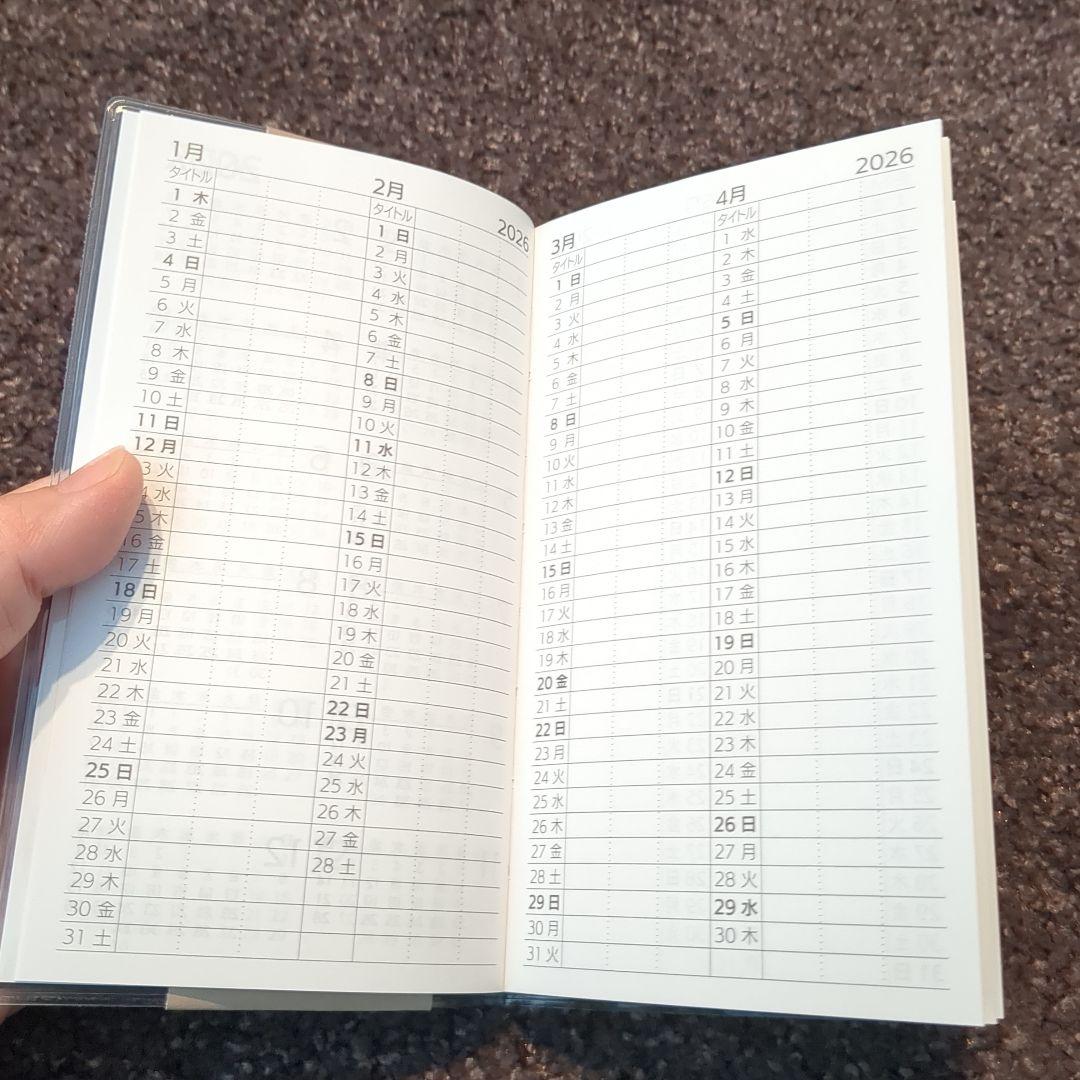 1月
タイトル
1 木
2 金
3 土
4 日
5 月
6 火
7 水
8 木
9 金
10 土
11 日
12 月
3 火
4 水
5 木
16 金
17 土
18 日
19 月
20 火
21 水
22 木
23 金
24 土
25 日
26 月
27 火
28 水
29 木
30 金
31 土
2月
2026
タイトル
1 日
2 月
3 火
4 水
5 木
6 金
7 土
8 日
9 月
10 火
11 水
12 木
13 金
14 土
15 日
16 月
17 火
18 水
19 木
20 金
21 土
22 日
23 月
24 火
25 水
26 木
27 金
28 土
3月
タイトル
1 日
2 月
3 火
4 水
5 木
6 金
7 土
8 日
9 月
10 火
11 水
12 木
13 金
14 土
15 日
16 月
17 火
18 水
19 木
20 金
21 土
22 日
23 月
24 火
25 水
26 木
27 金
28 土
29 日
30 月
31 火
4月
2026
タイトル
1 水
2 木
3 金
4 土
5 日
6 月
7 火
8 水
9 木
10 金
11 土
12 日
13 月
14 火
15 水
16 木
17 金
18 土
19 日
20 月
21 火
22 水
23 木
24 金
25 土
26 日
27 月
28 火
29 水
30 木